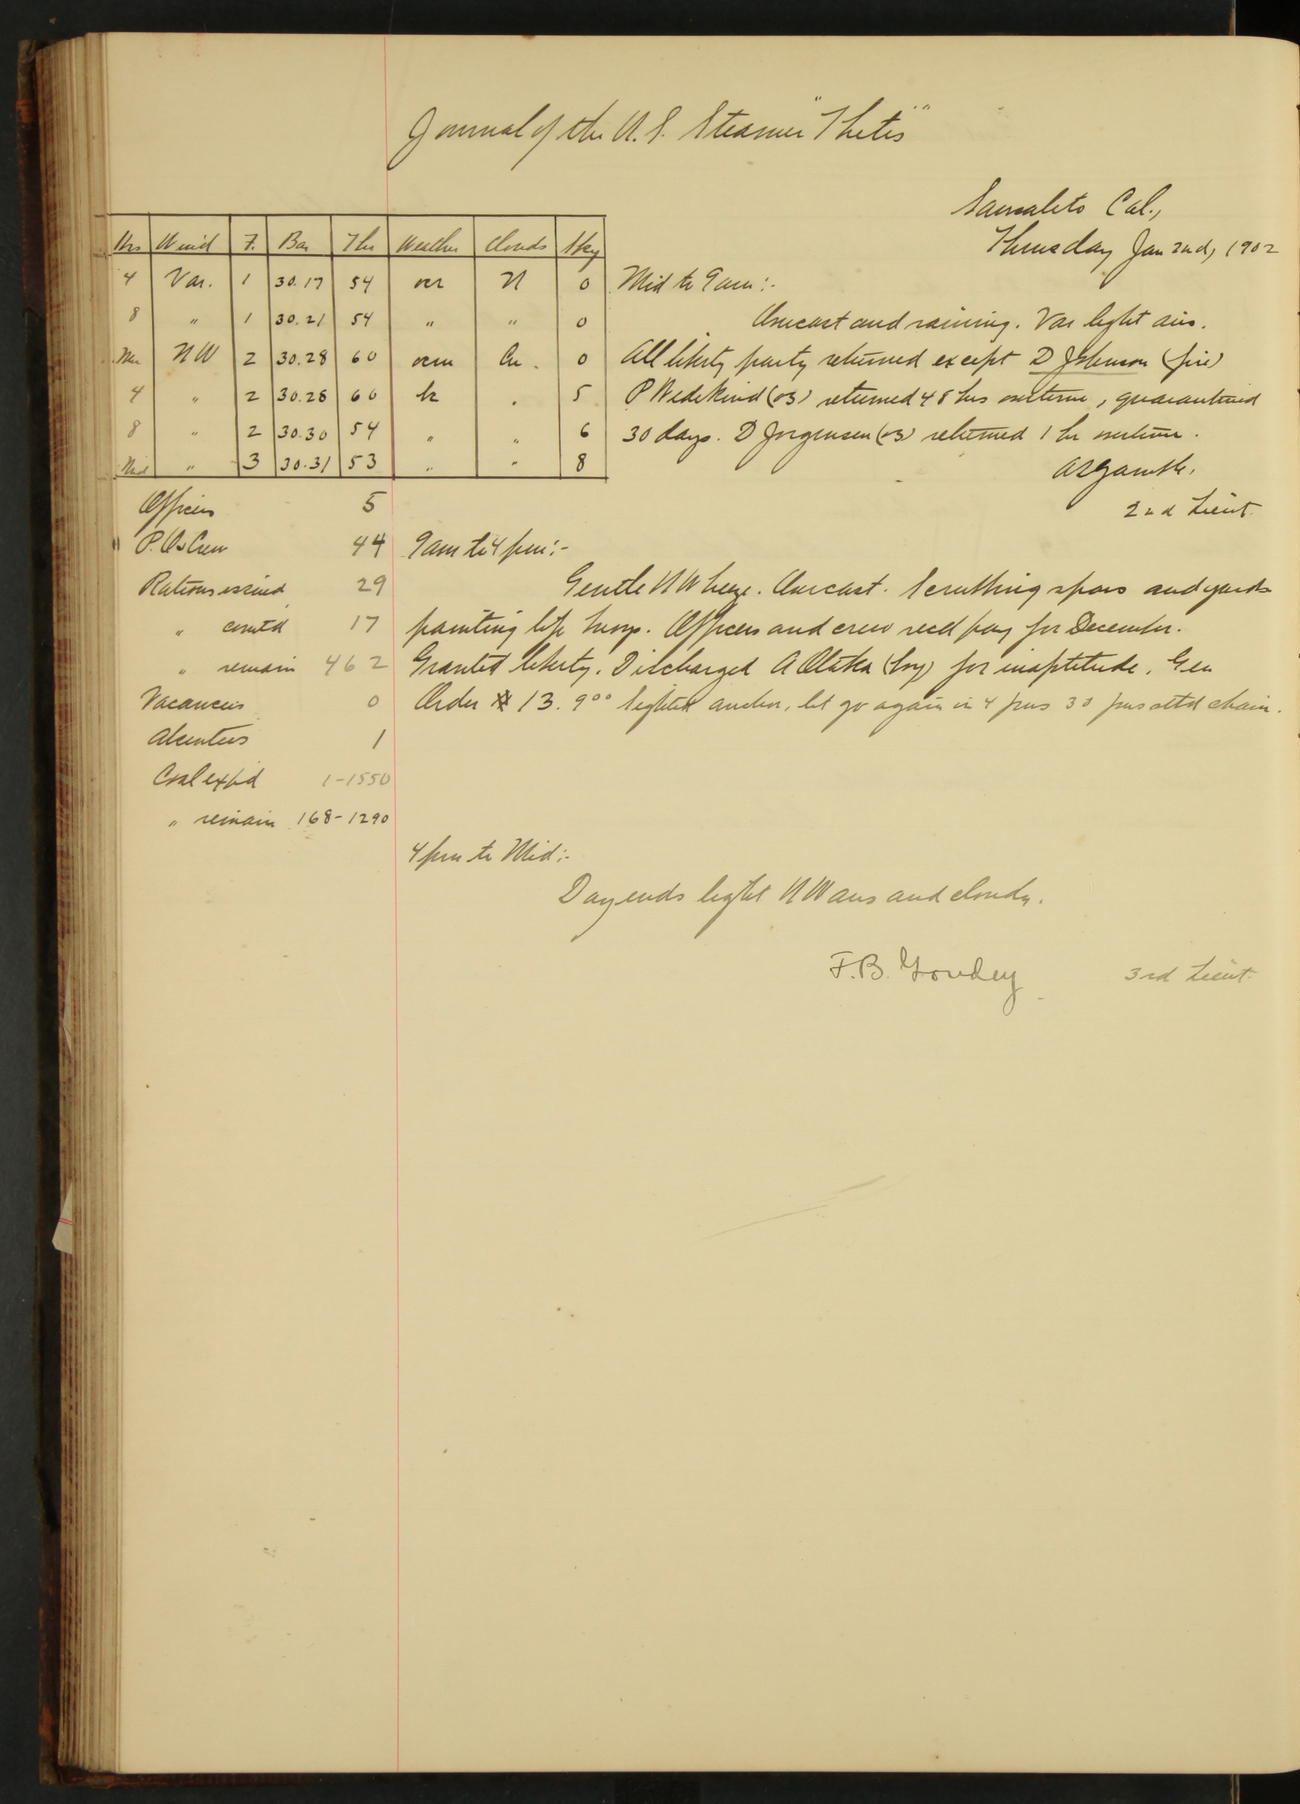 Journal of the U.S. Steamer "Thetis"
Sausalito Cal.,
Thursday Jan 2nd, 1902
Hrs Wind F. Bar Ther Weather Clouds Sky
4 Var. 1 30.17 54 ocr N 0
8 " 1 30.21 54 " " 0
Mer NW 2 30.28 60 ocm Cu. 0
4 " 2 30.28 60 bc . 5
8 " 2 30.30 54 " " 6
Mid " 3 30.31 53 " " 8
Mid to 9 am:-
Overcast and raining. Var light airs.
All liberty party returned except D Johnson (fire)
P Wedekind (os) returned 48 hrs overtime, quarantined
30 days. D Jorgensen (os) returned 1 hr overtime.
2nd Lieut.
Officers 5
P.Os Crew 44
Rations issued 29
" comtd 17
" remain 462
Vacancies 0
Absentees 1
Coal exp'd 1-1550
" remain 168-1290
9 am to 4 pm:-
Gentle NW breeze. Overcast. Scrubbing spars and yards
painting life buoys. Officers and crew recd pay for December.
Granted liberty. Discharged A (boy) for inaptitude. Gen
Order 13. 9°° Sighted anchor, let go again in 4 fms 30 fms stbd chain.
4 pm to Mid:-
Day ends light NW airs and cloudy.
F.B. Goudey 3rd Lieut.